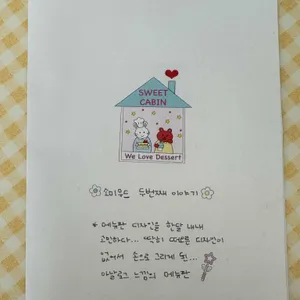 SWEET
CABIN
We Love Dessert
소미무드 두번째 이야기
* 메뉴판 디자인을 한달 내내
고민하다... 딱히 떠오른 디자인이
없어서 손으로 그리게 된...
아날로그 느낌의 메뉴판